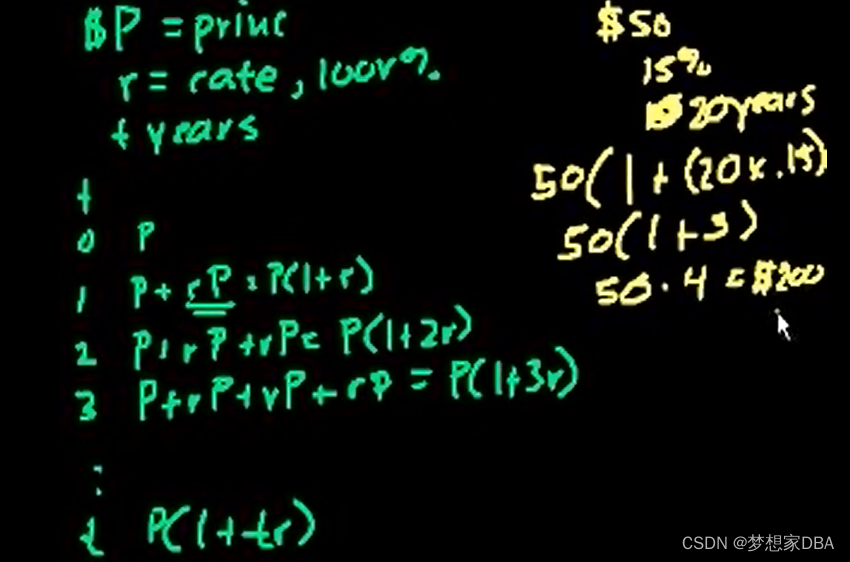 $P = princ
r = rate, 100r%.
t years
t
0 P
1 P + rP = P(1+r)
2 P + rP + rP = P(1+2r)
3 P+rP+rP+rP = P(1+3r)
⋮
t P(1+tr)
$50
15%
20years
50(1+(20x.15)
50(1+3)
50.4 = $200
CSDN @梦想家DBA